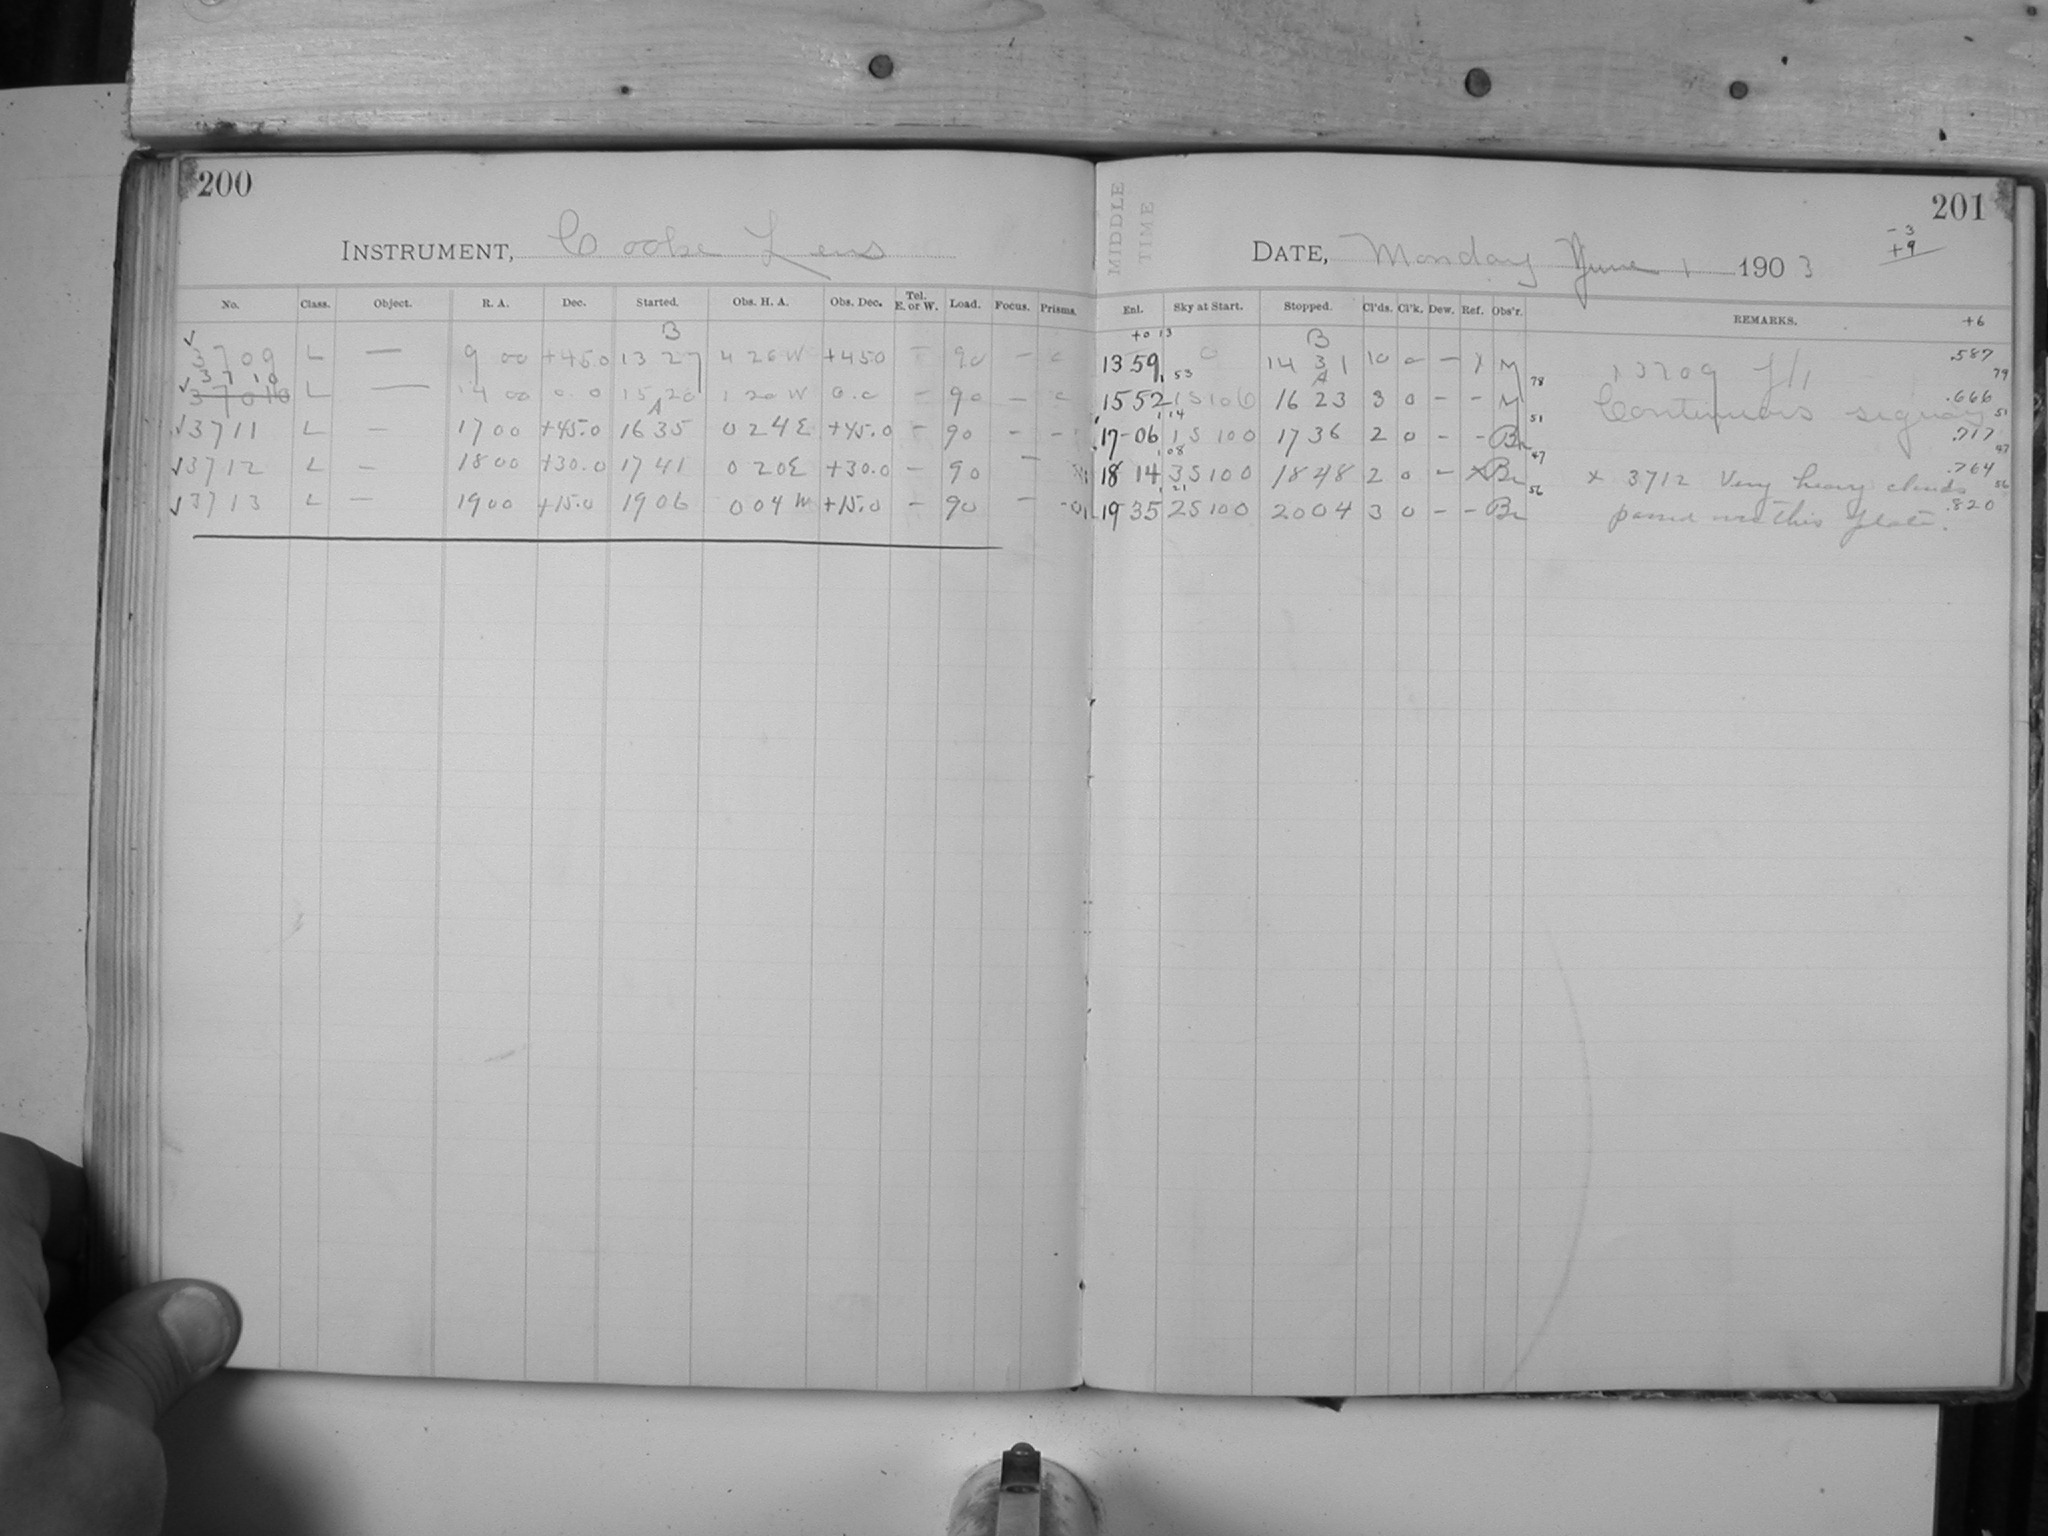 200
INSTRUMENT, Cooke Lens
No. Class. Object. R. A. Dec. Started. Obs. H. A. Obs. Dec. Tel. E. or W. Load. Focus. Prisms.
B
3709 L — 9 00 +45.0 13 27 4 26 W +45.0 — 90 —
3710
37010 L — 14 00 0.0 15 20 1 20 W 0.0 — 90 —
A
3711 L — 17 00 +45.0 16 35 0 24 E +45.0 — 90 — —
3712 L — 18 00 +30.0 17 41 0 20 E +30.0 — 90 —
3713 L — 19 00 +15.0 19 06 0 04 W +15.0 — 90 —
MIDDLE TIME
201
DATE, Monday June 1 1903
-3
+9
Enl. Sky at Start. Stopped. Cl'ds. Cl'k. Dew. Ref. Obs'r. REMARKS. +6
+0 13 B
13 59 0 14 31 10 0 — x M .587
1 53 A 78 79
15 52 1S100 16 23 3 0 — - M Continuous .666
1 14 51 51
17-06 1S 100 17 36 2 0 - - Br .717
1 08 47 47
18 14 3S100 18 48 2 0 — x Br x 3712 Very heavy clouds .764
1 21 56 56
19 35 2S100 20 04 3 0 - - Br passed over this plate. .820